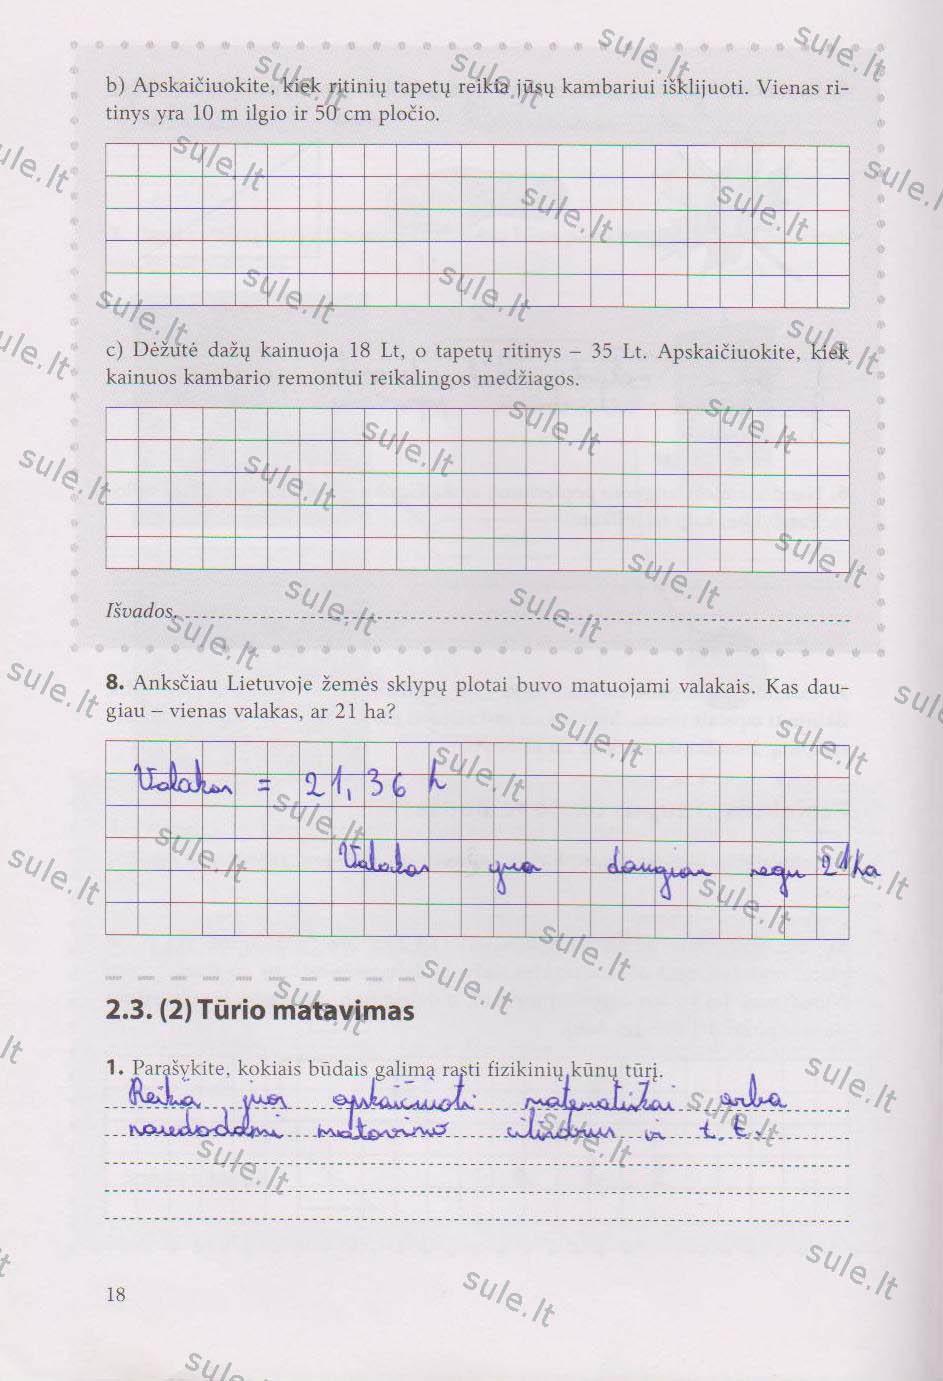 b) Apskaičiuokite, kiek ritinių tapetų reikia jūsų kambariui išklijuoti. Vienas ri-
tinys yra 10 m ilgio ir 50 cm pločio.
c) Dėžutė dažų kainuoja 18 Lt, o tapetų ritinys – 35 Lt. Apskaičiuokite, kiek
kainuos kambario remontui reikalingos medžiagos.
Išvados.
8. Anksčiau Lietuvoje žemės sklypų plotai buvo matuojami valakais. Kas dau-
giau – vienas valakas, ar 21 ha?
Valakas = 21,36 h
Valakas yra daugiau negu 21ha
2.3. (2) Tūrio matavimas
1. Parašykite, kokiais būdais galima rasti fizikinių kūnų tūrį.
Reikia juos apskaičiuoti matematiškai arba
naudodami matavimo cilindrus ir t.t.
18
sule.lt